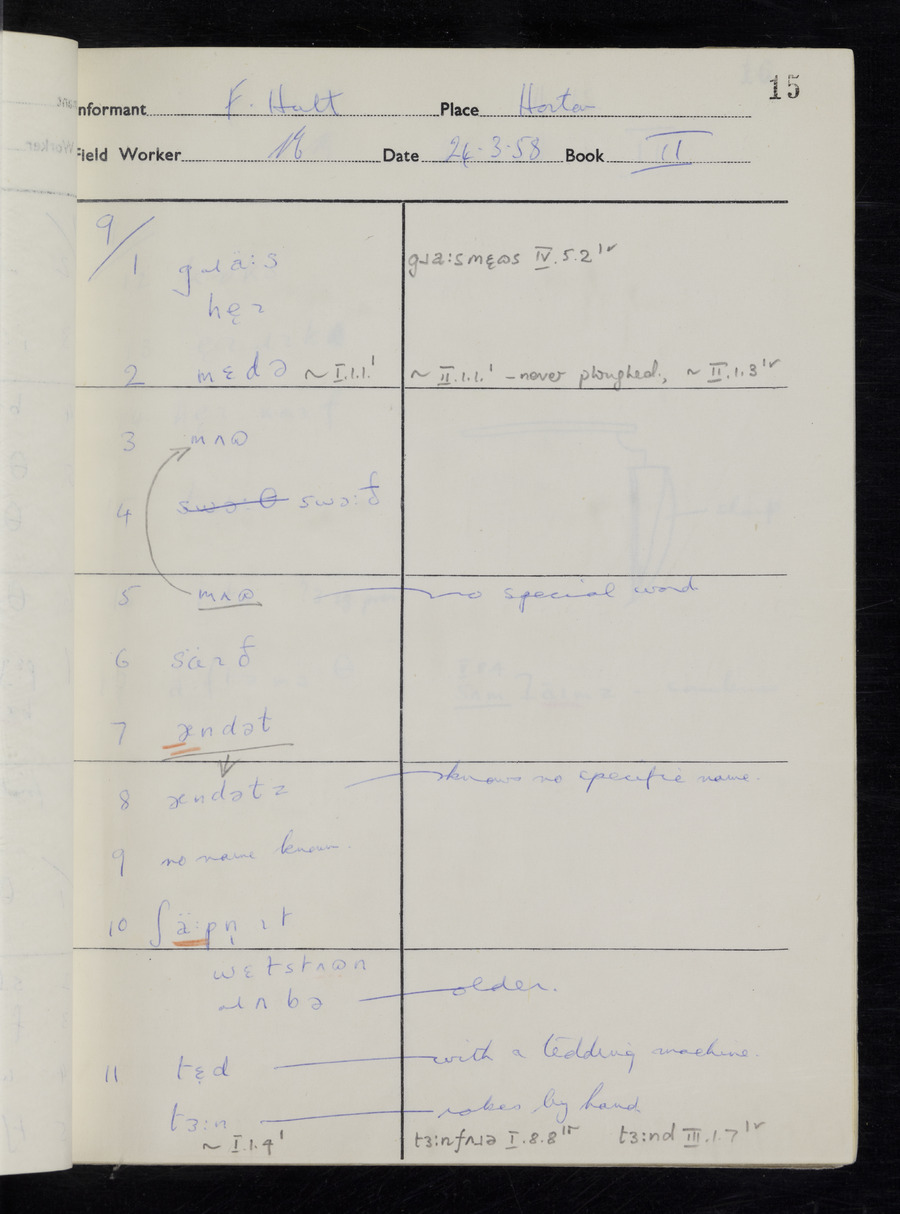 15
nformant F. Hatt Place Horton
ield Worker Date 24.3.58 Book II
9/
1 gɹaːs gɹaːsmɛʊs IV.5.2
hęɪ
2 mɛdə ~ I.1.1.¹ ~ II.1.1.¹ – never ploughed, ~ II.1.3
3 mʌʊ
4 swəːθ swəːð
5 mʌʊ no special word
6 saɪð
7 ændət
8 ændətz knows no specific name.
9 no name known.
10 ʃaːpn̩ ɪt
wɛtstʌʊn
ɹʌbə older.
11 tɛd with a tedding machine.
tɜːn rakes by hand
~ I.1.4¹ tɜːnfʌɹə I.8.8 tɜːnd III.1.7